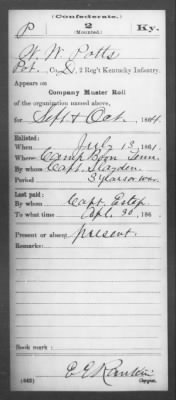 (Confederate.)
P 2 Ky.
(Mounted.)
W. W. Potts
Pvt., Co. D, 2 Reg't Kentucky Infantry.
Appears on
Company Muster Roll
of the organization named above,
for Sept & Oct, 1864.
Enlisted:
When July 13, 1861.
Where Camp Boon Tenn.
By whom Capt. Slayden
Period 3 years or war
Last paid:
By whom Capt. Estep
To what time Apl. 30, 186
Present or absent present.
Remarks:
Book mark:
(642) Copyist.